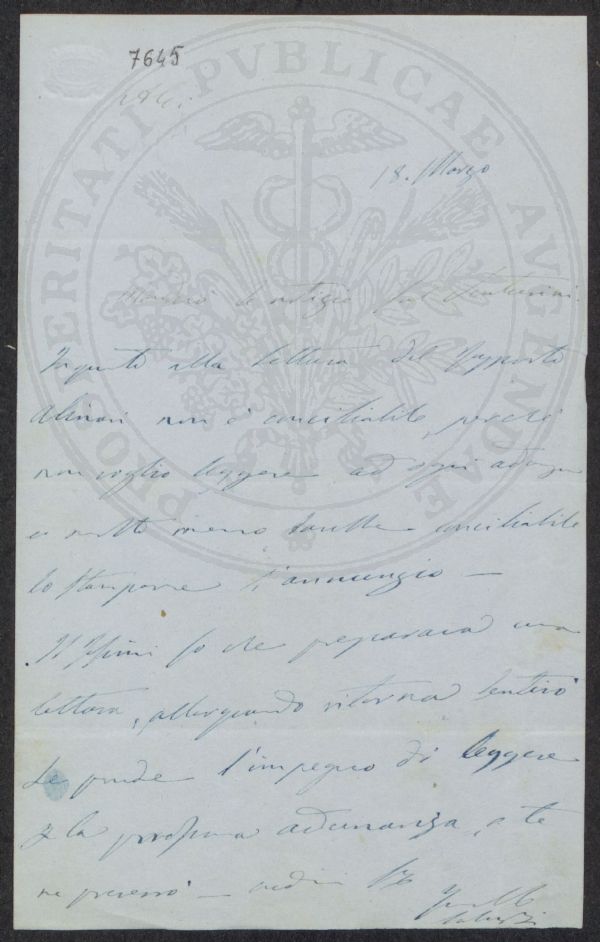 7645
PROSPERITATI PVBLICAE AVGENDAE
18. Marzo
le notizie
In quanto alla lettura del Rapporto
Alinari non è conciliabile, perché
non voglio leggere ad ogni adun
e molto meno sarebbe conciliabile
lo stampare l'annunzio —
Il so che preparava una
lettura, allorquando ritorna sentirò
se prende l'impegno di leggere
la prossima adunanza, e te
ne